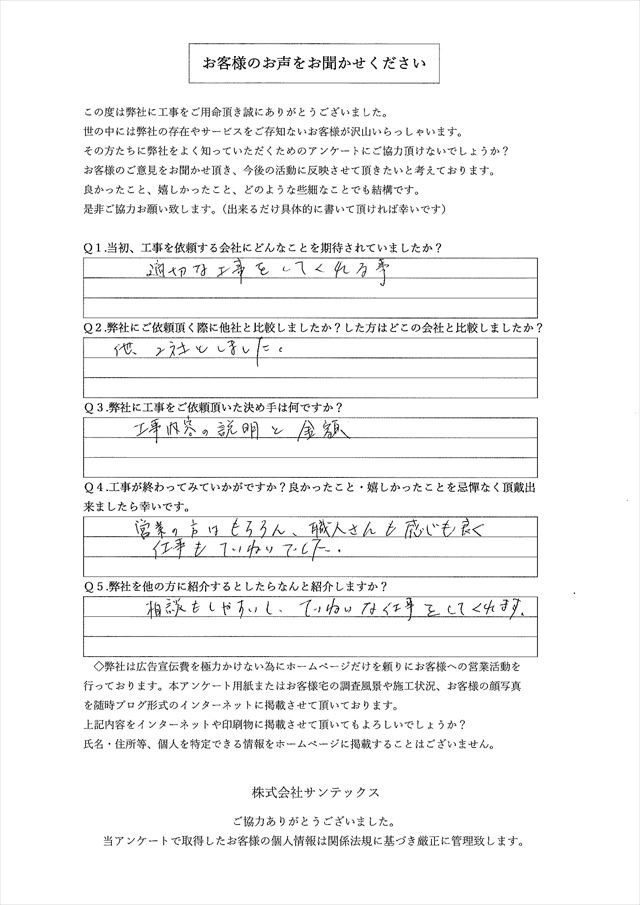 お客様のお声をお聞かせください
この度は弊社に工事をご用命頂き誠にありがとうございました。
世の中には弊社の存在やサービスをご存知ないお客様が沢山いらっしゃいます。
その方たちに弊社をよく知っていただくためのアンケートにご協力頂けないでしょうか？
お客様のご意見をお聞かせ頂き、今後の活動に反映させて頂きたいと考えております。
良かったこと、嬉しかったこと、どのような些細なことでも結構です。
是非ご協力お願い致します。（出来るだけ具体的に書いて頂ければ幸いです）
Ｑ１.当初、工事を依頼する会社にどんなことを期待されていましたか？
適切な工事をしてくれる事
Ｑ２.弊社にご依頼頂く際に他社と比較しましたか？した方はどこの会社と比較しましたか？
他、2社としました。
Ｑ３.弊社に工事をご依頼頂いた決め手は何ですか？
工事内容の説明と金額
Ｑ４.工事が終わってみていかがですか？良かったこと・嬉しかったことを忌憚なく頂戴出
来ましたら幸いです。
営業の方はもちろん、職人さんも感じも良く
仕事もていねいでした。
Ｑ５.弊社を他の方に紹介するとしたらなんと紹介しますか？
相談もしやすいし、ていねいな仕事をしてくれます。
◇弊社は広告宣伝費を極力かけない為にホームページだけを頼りにお客様への営業活動を
行っております。本アンケート用紙またはお客様宅の調査風景や施工状況、お客様の顔写真
を随時ブログ形式のインターネットに掲載させて頂いております。
上記内容をインターネットや印刷物に掲載させて頂いてもよろしいでしょうか？
氏名・住所等、個人を特定できる情報をホームページに掲載することはございません。
株式会社サンテックス
ご協力ありがとうございました。
当アンケートで取得したお客様の個人情報は関係法規に基づき厳正に管理致します。